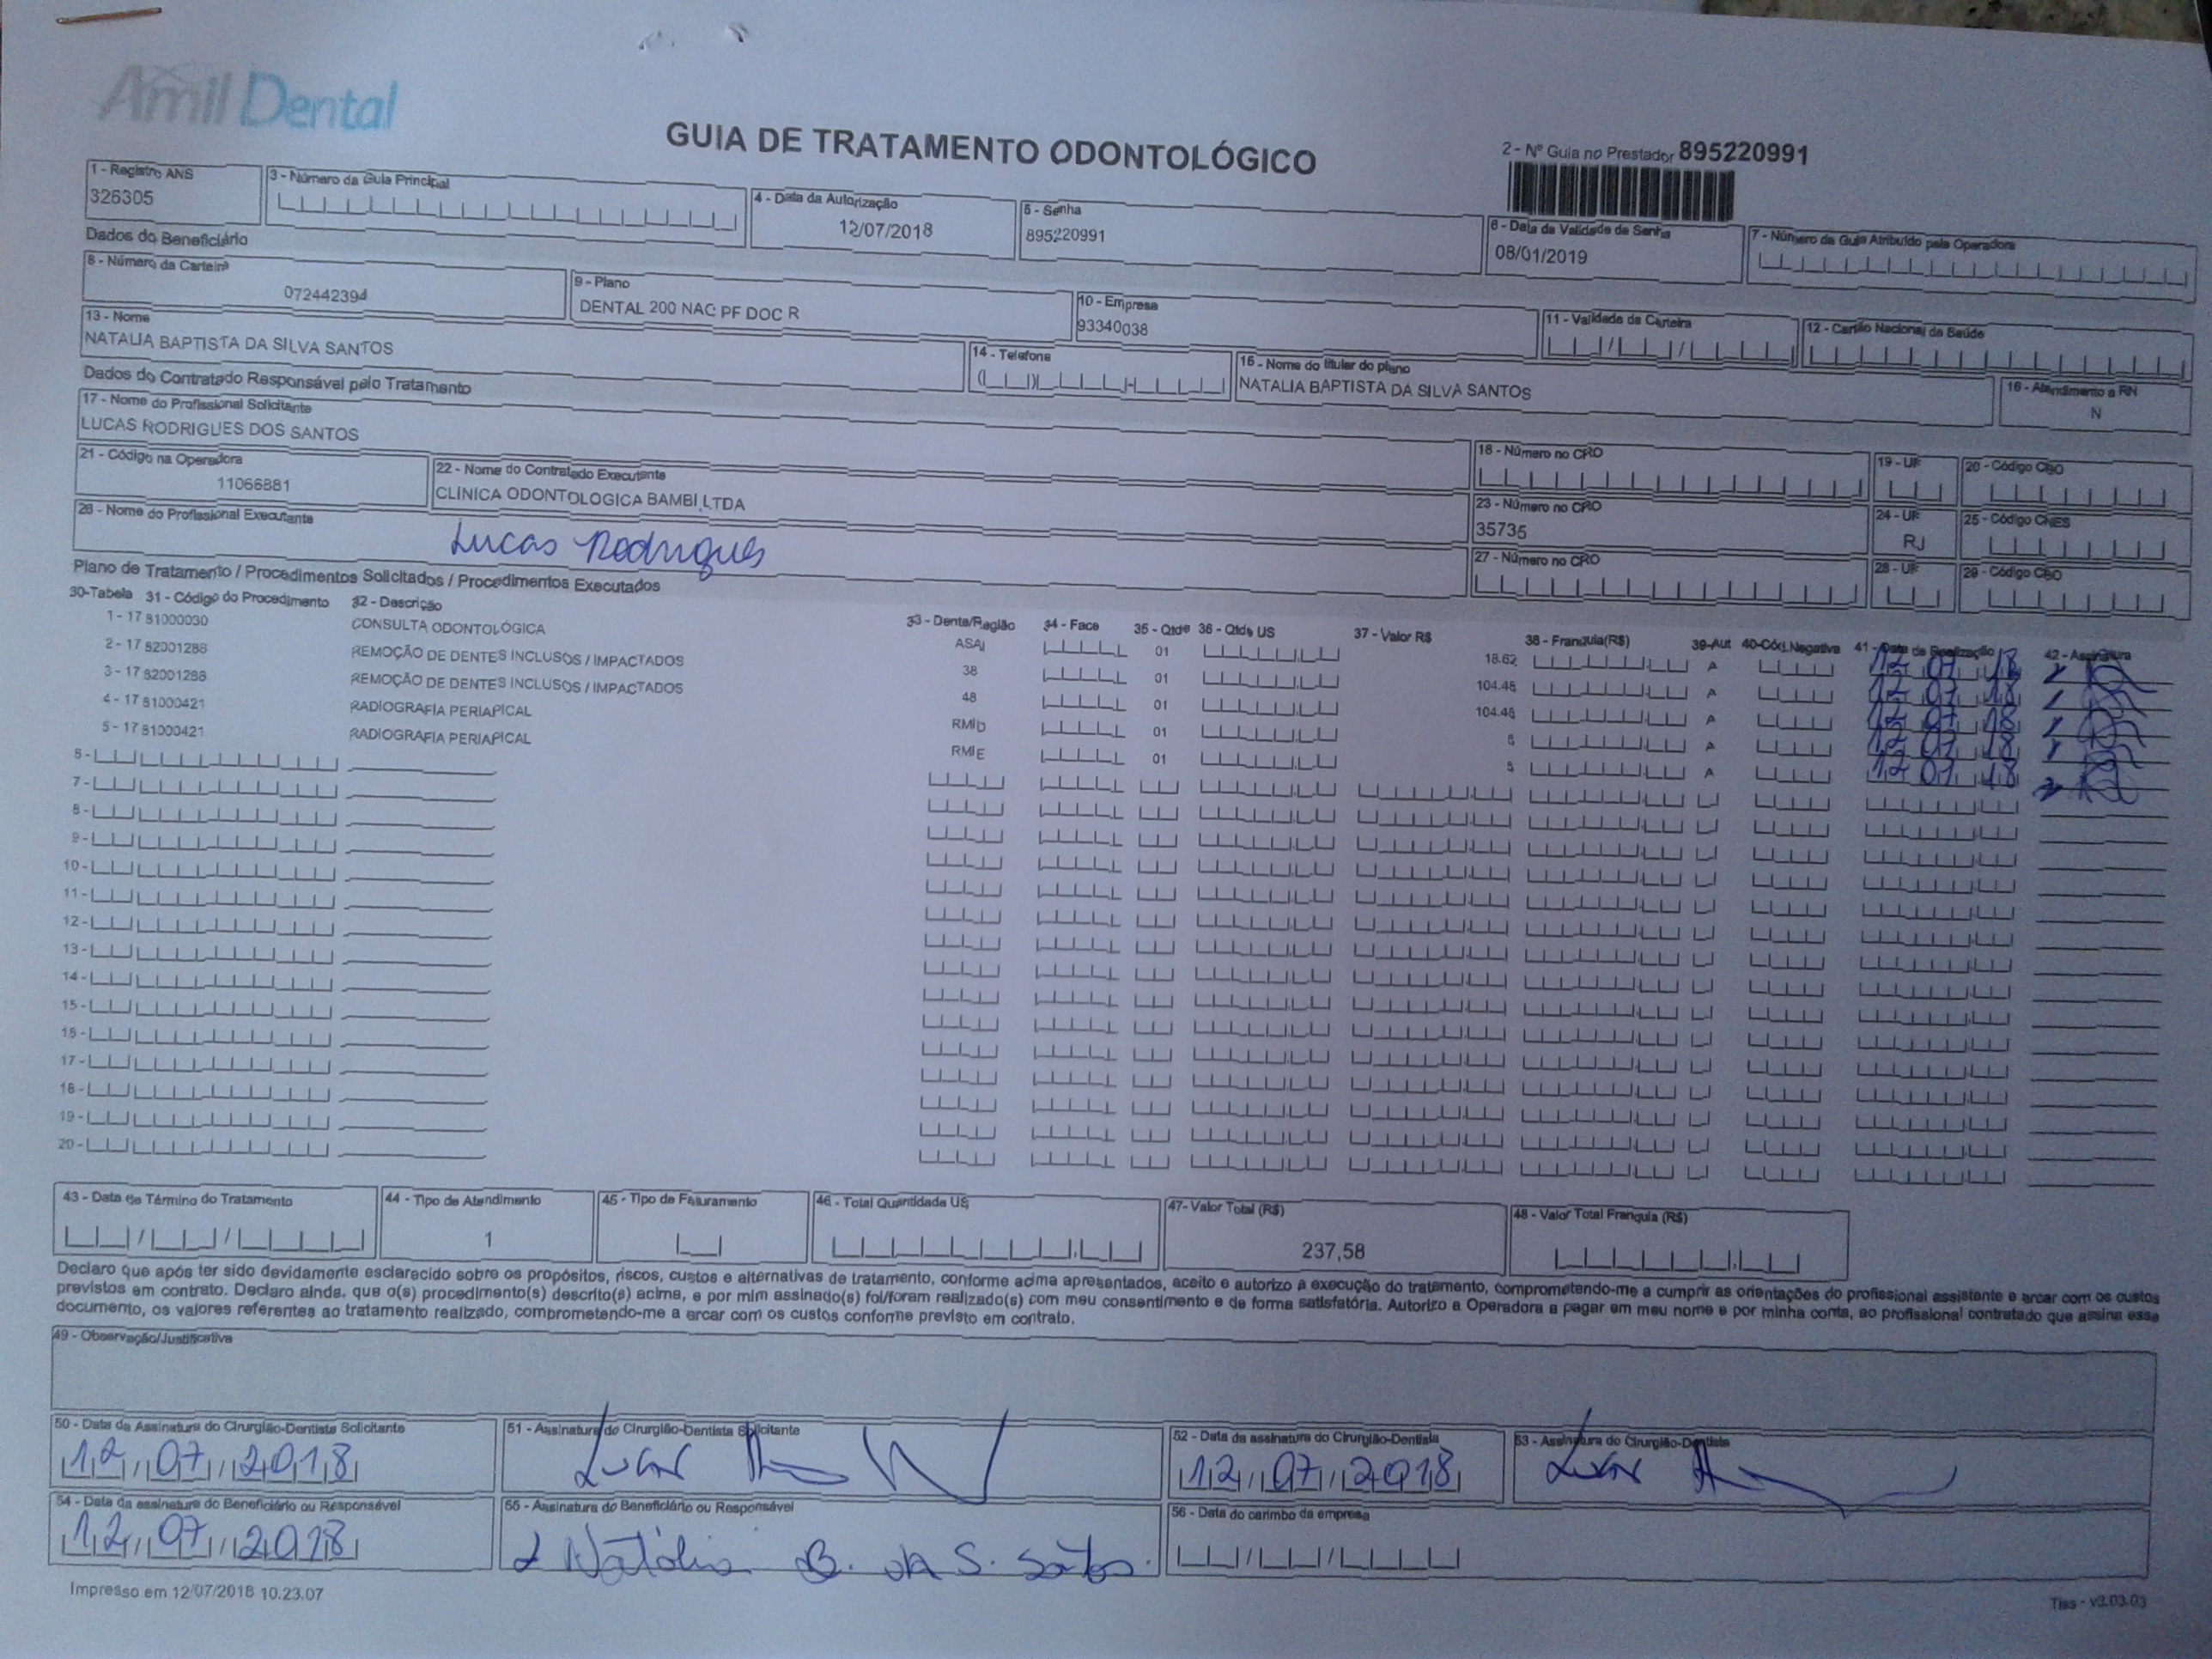 Amil Dental
GUIA DE TRATAMENTO ODONTOLÓGICO
2 - Nº Guia no Prestador 895220991
1 - Registro ANS
326305
3 - Número da Guia Principal
4 - Data da Autorização
12/07/2018
5 - Senha
895220991
6 - Data da Validade da Senha
08/01/2019
7 - Número da Guia Atribuído pela Operadora
Dados do Beneficiário
8 - Número da Carteira
072442394
9 - Plano
DENTAL 200 NAC PF DOC R
10 - Empresa
93340038
11 - Validade da Carteira
12 - Cartão Nacional de Saúde
13 - Nome
NATALIA BAPTISTA DA SILVA SANTOS
14 - Telefone
15 - Nome do titular do plano
NATALIA BAPTISTA DA SILVA SANTOS
16 - Atendimento a RN
N
Dados do Contratado Responsável pelo Tratamento
17 - Nome do Profissional Solicitante
LUCAS RODRIGUES DOS SANTOS
18 - Número no CRO
19 - UF
20 - Código CBO
21 - Código na Operadora
11066881
22 - Nome do Contratado Executante
CLINICA ODONTOLOGICA BAMBI LTDA
23 - Número no CRO
35735
24 - UF
RJ
25 - Código CNES
26 - Nome do Profissional Executante
Lucas Rodrigues
27 - Número no CRO
28 - UF
29 - Código CBO
Plano de Tratamento / Procedimentos Solicitados / Procedimentos Executados
30-Tabela 31 - Código do Procedimento 32 - Descrição 33 - Dente/Região 34 - Face 35 - Qtde 36 - Qtde US 37 - Valor R$ 38 - Franquia(R$) 39-Aut 40-Cód.Negativa 41 - Data de Realização 42 - Assinatura
1 - 17 81000030 CONSULTA ODONTOLÓGICA ASAI 01 18.62 A
2 - 17 82001286 REMOÇÃO DE DENTES INCLUSOS / IMPACTADOS 38 01 104.48 A
3 - 17 82001286 REMOÇÃO DE DENTES INCLUSOS / IMPACTADOS 48 01 104.48 A
4 - 17 81000421 RADIOGRAFIA PERIAPICAL RMID 01 5 A
5 - 17 81000421 RADIOGRAFIA PERIAPICAL RMIE 01 5 A
6 -
7 -
8 -
9 -
10 -
11 -
12 -
13 -
14 -
15 -
16 -
17 -
18 -
19 -
20 -
43 - Data de Término do Tratamento
44 - Tipo de Atendimento
1
45 - Tipo de Faturamento
46 - Total Quantidade US
47- Valor Total (R$)
237,58
48 - Valor Total Franquia (R$)
Declaro que após ter sido devidamente esclarecido sobre os propósitos, riscos, custos e alternativas de tratamento, conforme acima apresentados, aceito e autorizo a execução do tratamento, comprometendo-me a cumprir as orientações do profissional assistente e arcar com os custos
previstos em contrato. Declaro ainda, que o(s) procedimento(s) descrito(s) acima, e por mim assinado(s) foi/foram realizado(s) com meu consentimento e de forma satisfatória. Autorizo a Operadora a pagar em meu nome e por minha conta, ao profissional contratado que assina esse
documento, os valores referentes ao tratamento realizado, comprometendo-me a arcar com os custos conforme previsto em contrato.
49 - Observação/Justificativa
50 - Data da Assinatura do Cirurgião-Dentista Solicitante
12/07/2018
51 - Assinatura do Cirurgião-Dentista Solicitante
52 - Data da assinatura do Cirurgião-Dentista
12/07/2018
53 - Assinatura do Cirurgião-Dentista
54 - Data da assinatura do Beneficiário ou Responsável
12/07/2018
55 - Assinatura do Beneficiário ou Responsável
Natália B. da S. Santos.
56 - Data do carimbo da empresa
Impresso em 12/07/2018 10.23.07
Tiss - v3.03.03